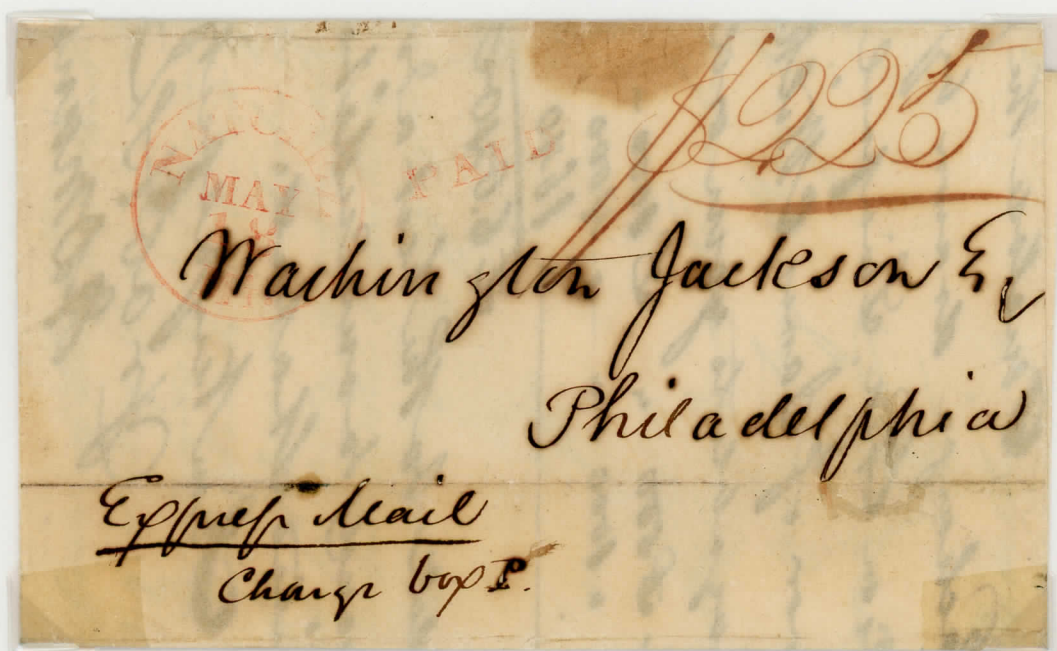 NATCHEZ
MAY
18
PAID
$225
Washington Jackson Eq
Philadelphia
Express Mail
Charge box P.